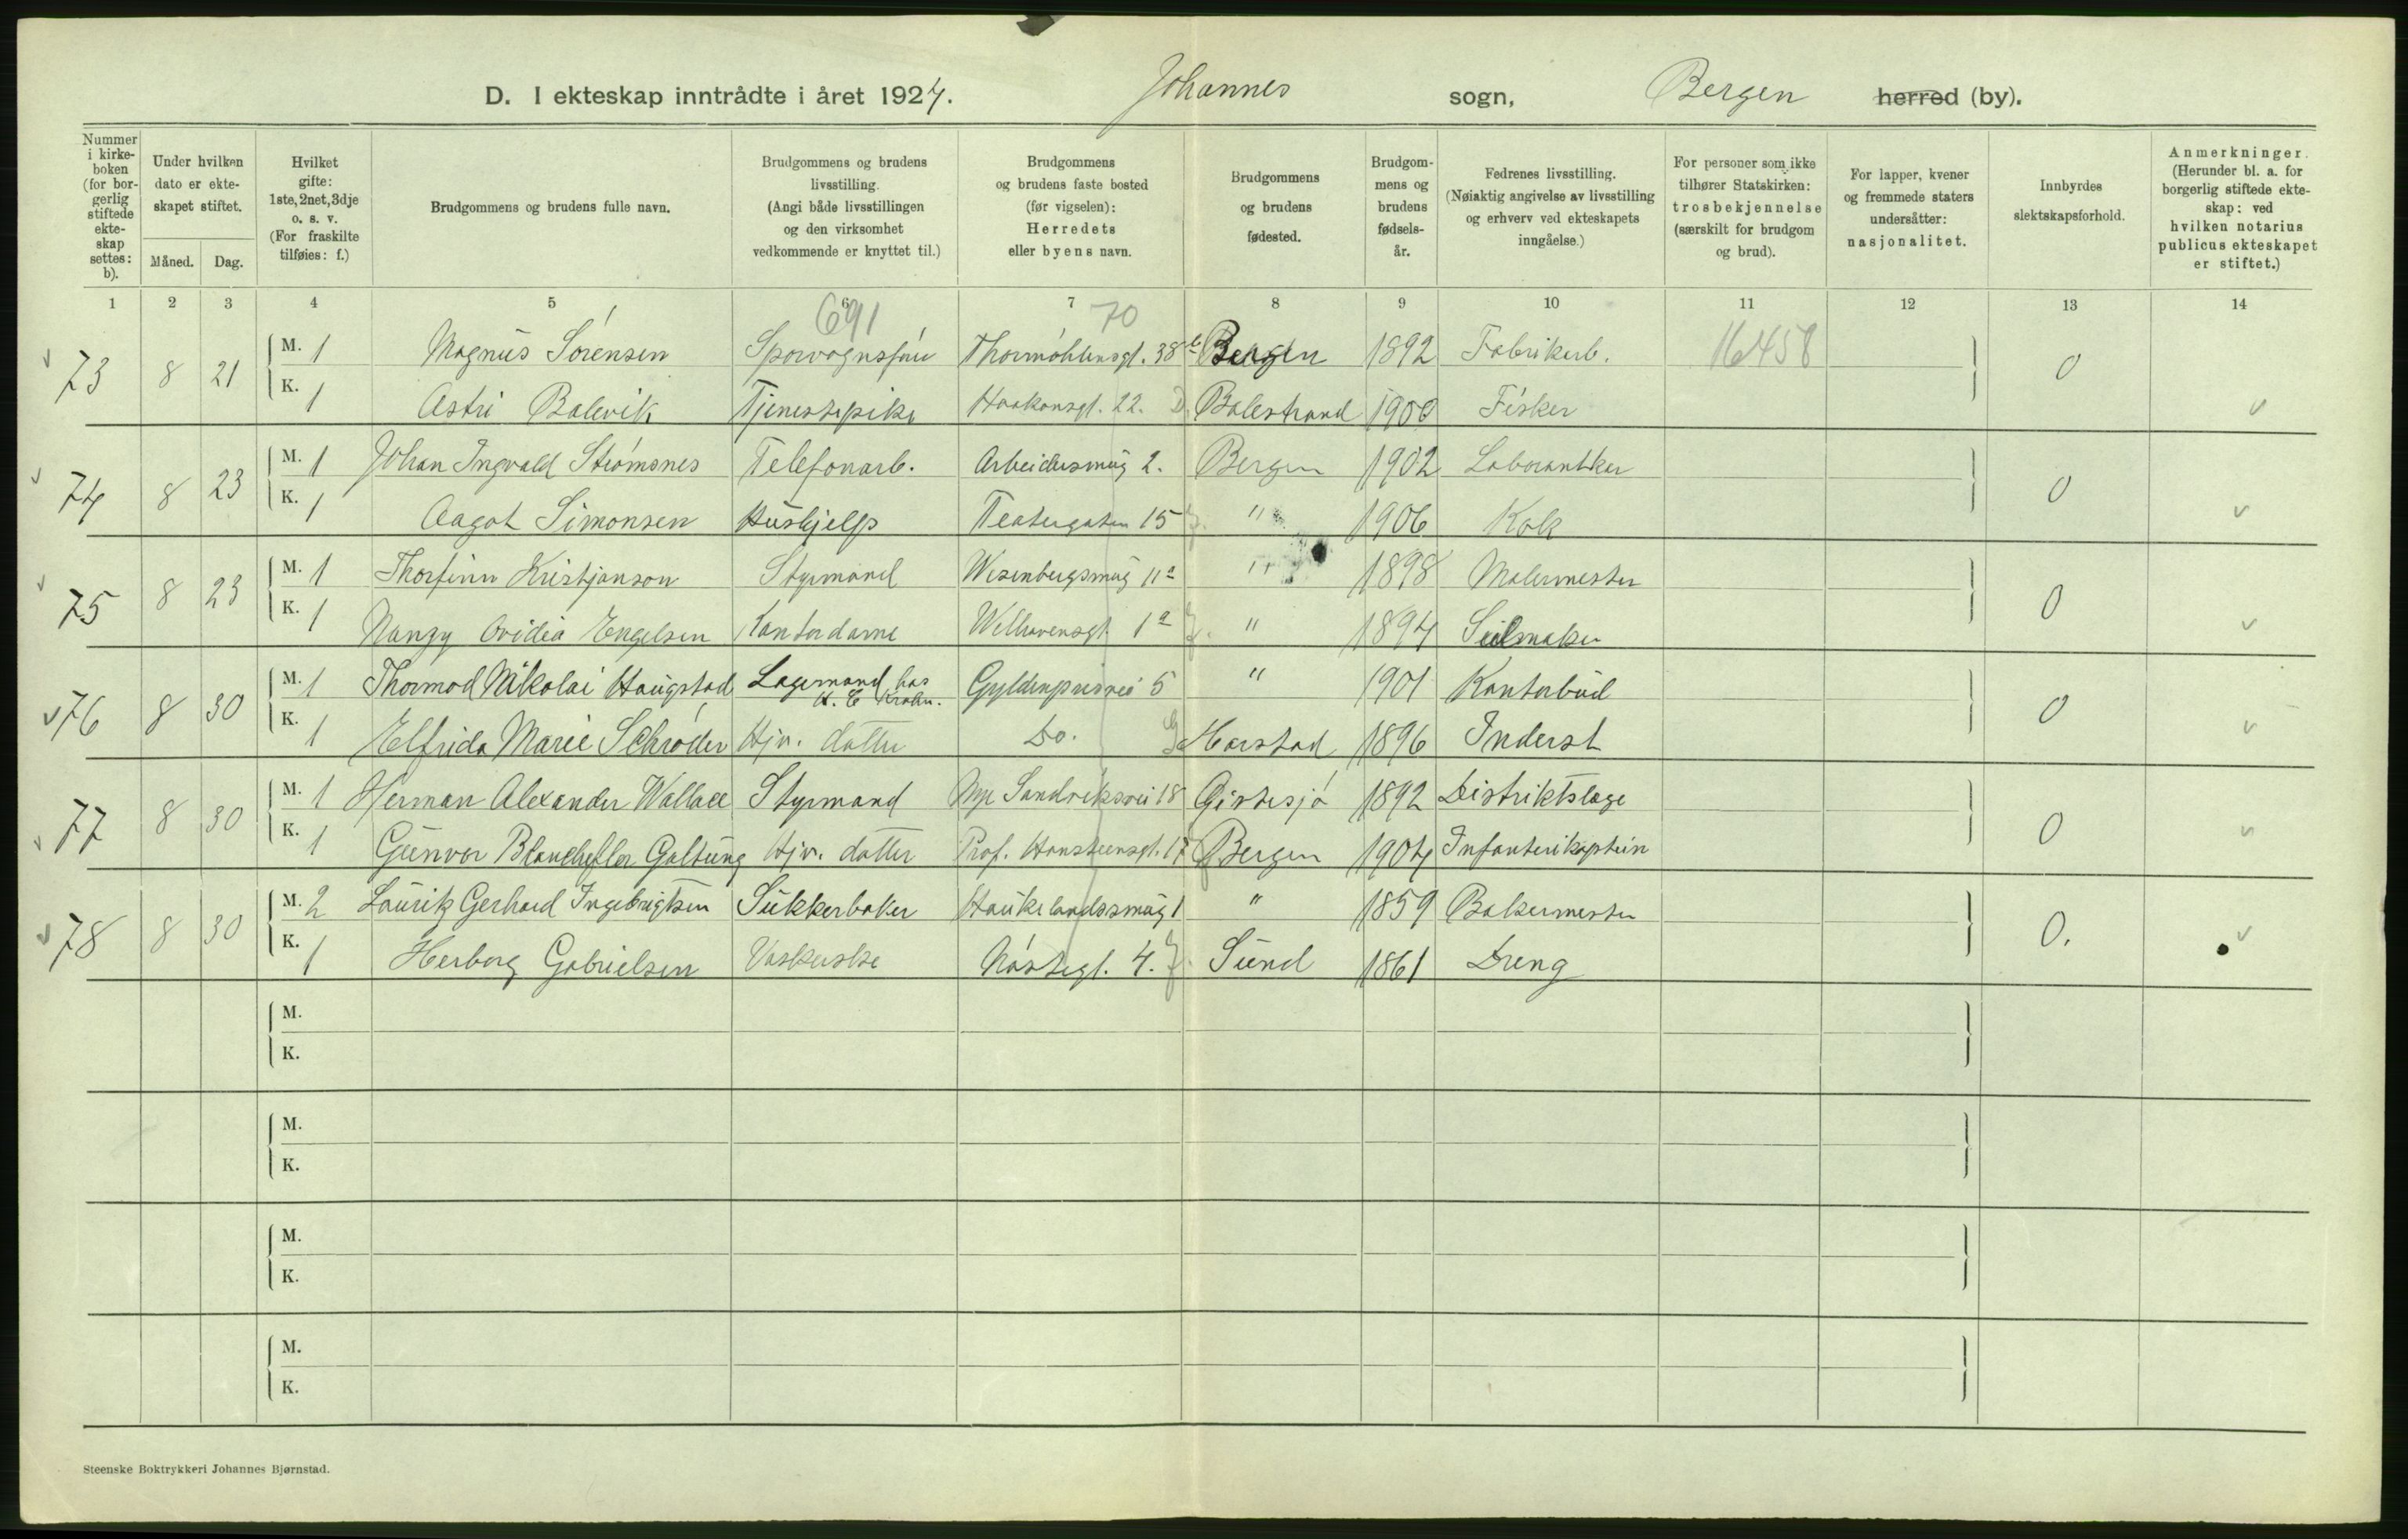 D. I ekteskap inntrådte i året 1924. Johannes sogn, Bergen herred (by).
Nummer i kirke-boken (for bor-gerlig stiftede ekte-skap settes: b).
Under hvilken dato er ekte-skapet stiftet.
Måned. Dag.
Hvilket gifte: 1ste, 2net, 3dje o. s. v. (For fraskilte tilføies: f.)
Brudgommens og brudens fulle navn.
Brudgommens og brudens livsstilling. (Angi både livsstillingen og den virksomhet vedkommende er knyttet til.)
Brudgommens og brudens faste bosted (før vigselen): Herredets eller byens navn.
Brudgommens og brudens fødested.
Brudgom-mens og brudens fødsels-år.
Fedrenes livsstilling. (Nøiaktig angivelse av livsstilling og erhverv ved ekteskapets inngåelse.)
For personer som ikke tilhører Statskirken: trosbekjennelse (særskilt for brudgom og brud).
For lapper, kvener og fremmede staters undersåtter: nasjonalitet.
Innbyrdes slektskapsforhold.
Anmerkninger. (Herunder bl. a. for borgerlig stiftede ekte-skap: ved hvilken notarius publicus ekteskapet er stiftet.)
1 2 3 4 5 6 7 8 9 10 11 12 13 14
691 70
73 8 21 M. 1 Magnus Sørensen Thormøhlensgt. 38 Bergen 1892 Fabrikarb. 16458 0
K. 1 Astri Balevik Tjenestepike Haakonsgt. 22. Balestrand 1900 Fisker
74 8 23 M. 1 Johan Ingvald Strømsnes Telefonarb. Arbeidersmug 2. Bergen 1902 0
K. 1 Aagot Simonsen Hushjelp Teatergaten 15 " 1906 Kok
75 8 23 M. 1 Thorfinn Kristjanson Styrmand Wesenbergsmug 11a " 1898 Malermester 0
K. 1 Nanzy Ovidia Engelsen Kontordame Welhavensgt. 1a " 1894 Seilmaker
76 8 30 M. 1 Thormod Nikolai Haugstad Lagermand hos H. E. Krohn. Gyldenprisvei 5 " 1901 Kontorbud 0
K. 1 Elfrida Marie Schrøder Hjv. datter Do. Harstad 1896 Inderst
77 8 30 M. 1 Herman Alexander Wallace Styrmand Nye Sandviksvei 18 1892 Distriktslæge 0
K. 1 Gunvor Blancheflor Galtung Hjv. datter Prof. Hansteensgt. 17 Bergen 1904 Infanterikaptein
78 8 30 M. 2 Lauritz Gerhard Ingebrigtsen Sukkerbaker Haukelandssmug 1 " 1859 Bakermester 0.
K. 1 Herborg Gabrielsen Vaskerske Nøstegt. 4. Sund 1861 Dreng
M.
K.
M.
K.
M.
K.
M.
K.
Steenske Boktrykkeri Johannes Bjørnstad.